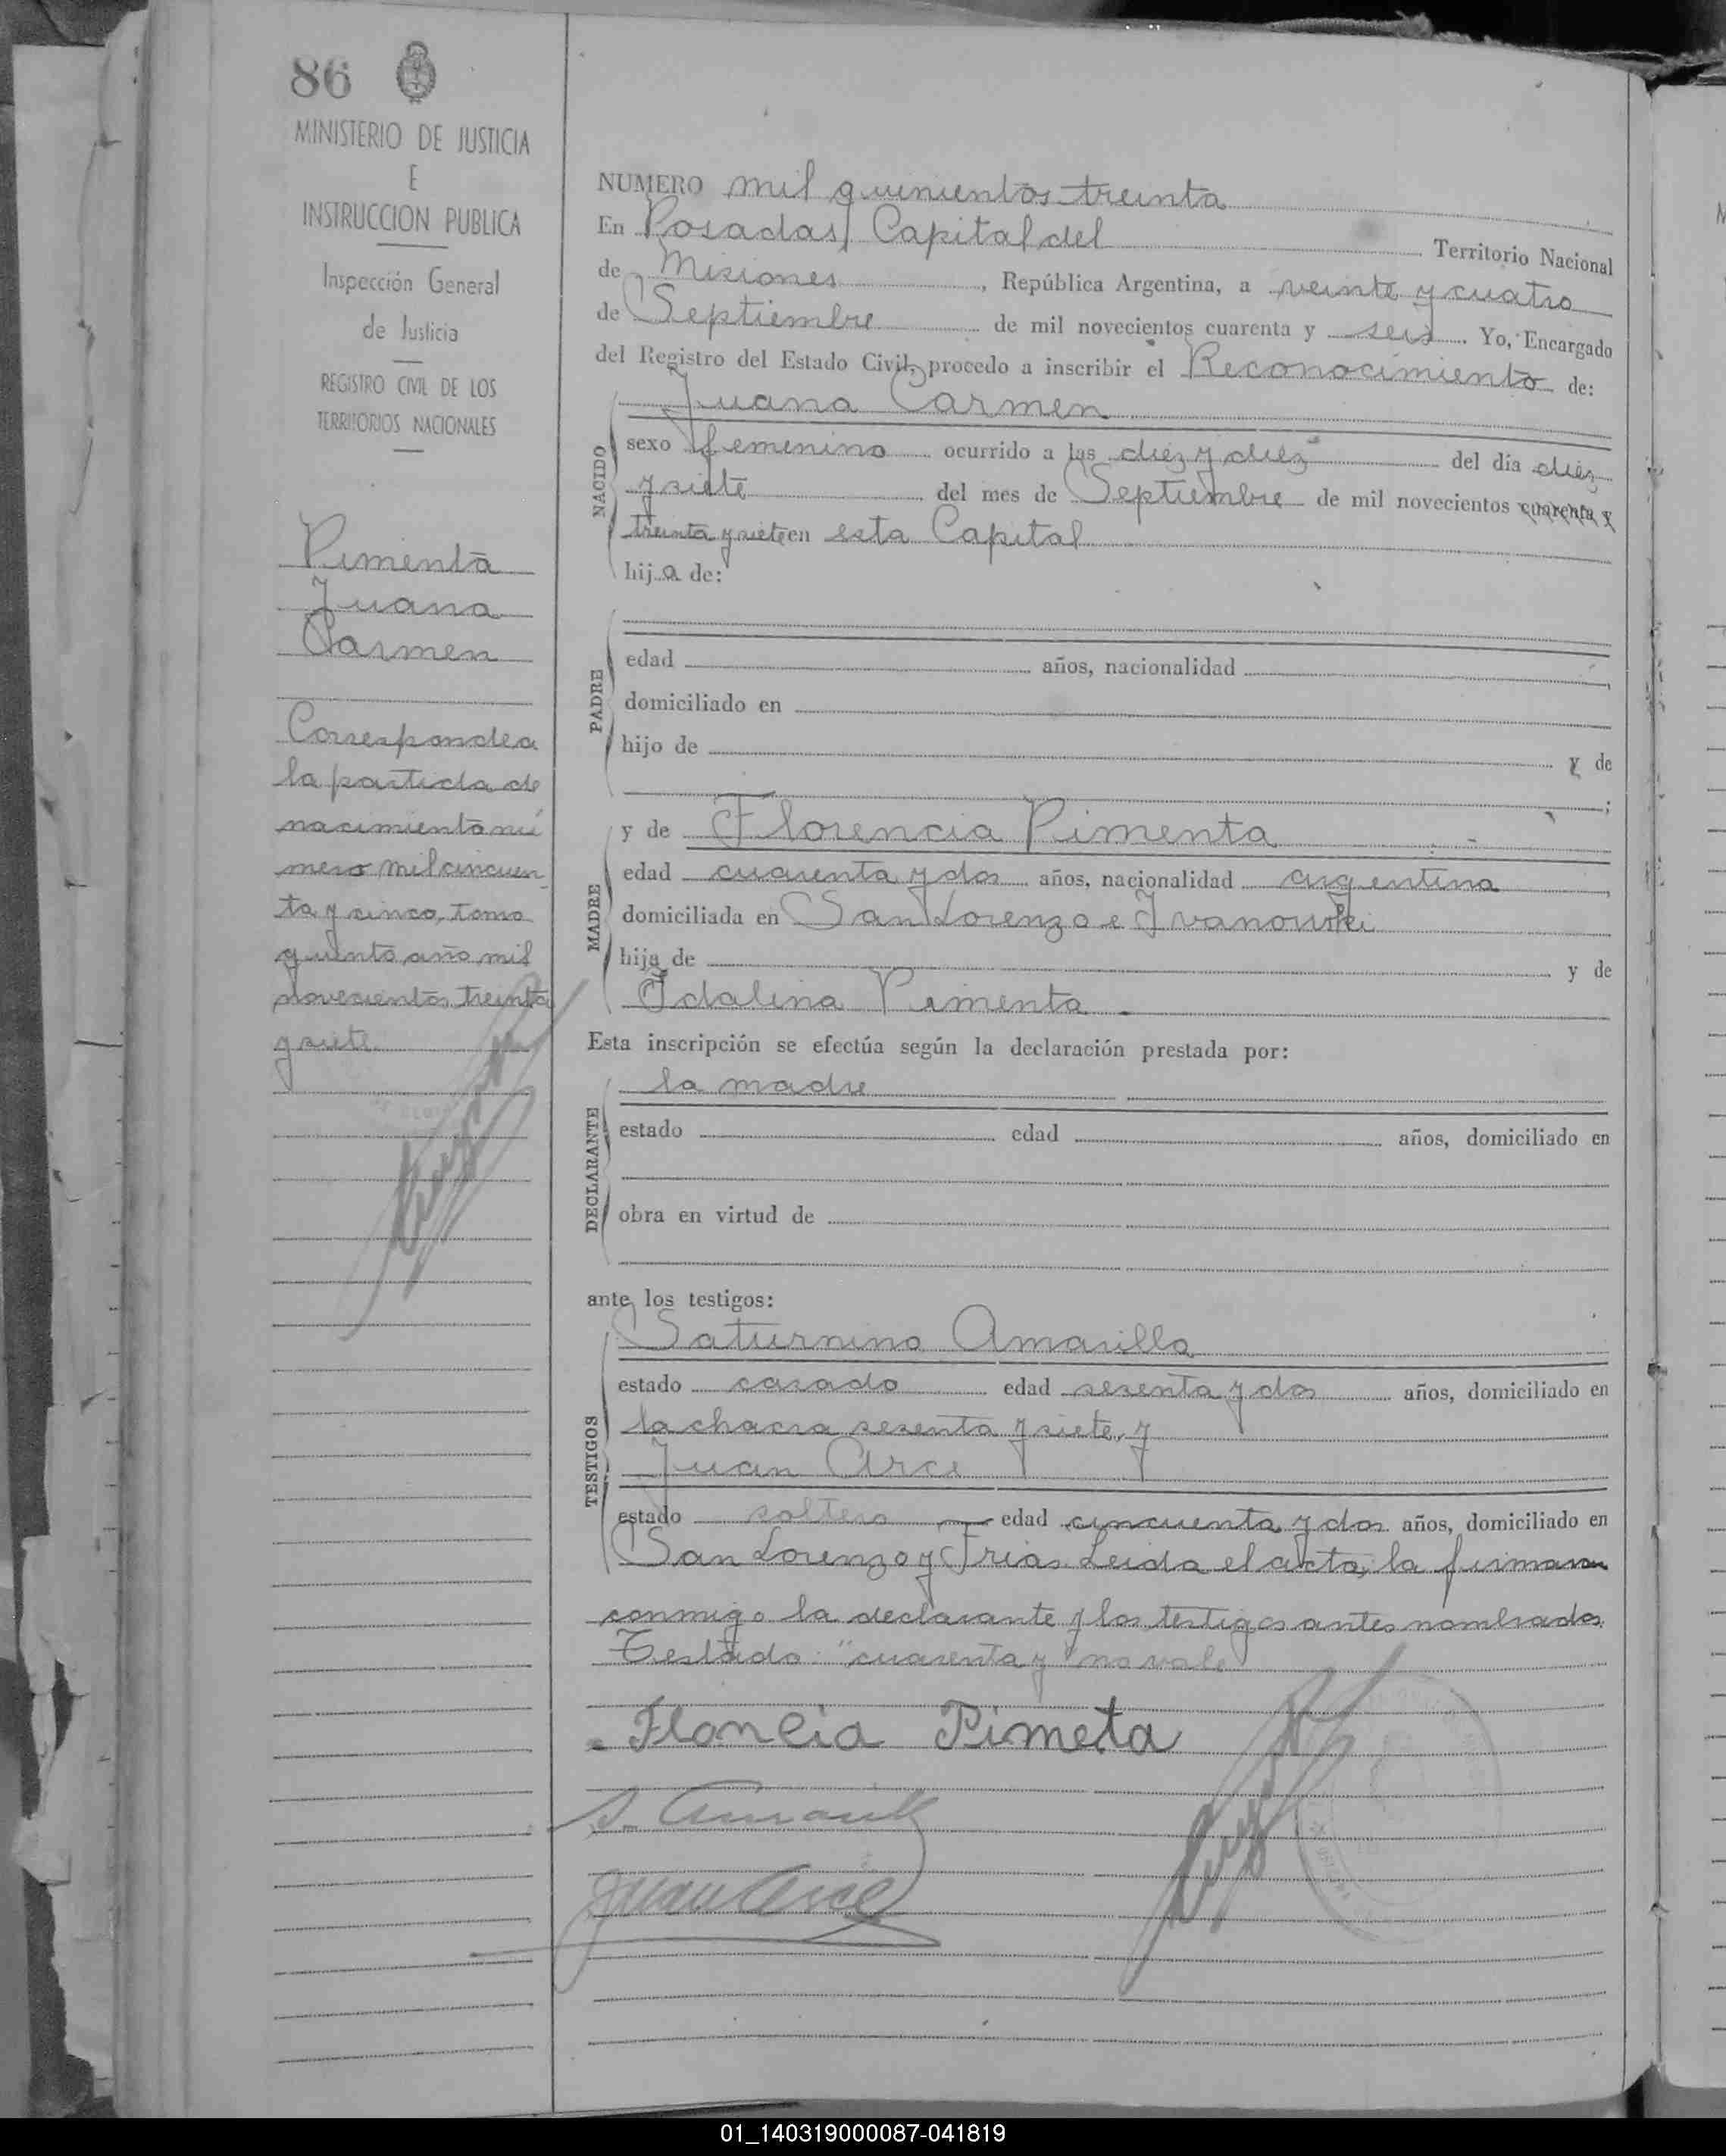 86
MINISTERIO DE JUSTICIA
E
INSTRUCCION PUBLICA
Inspección General
de Justicia
REGISTRO CIVIL DE LOS
TERRITORIOS NACIONALES
Pimenta
Juana
Carmen
Corresponde a
la partida de
nacimiento nú
mero mil cincuen
ta y cinco, tomo
quinto año mil
novecientos treinta
y siete
NUMERO mil quinientos treinta
En Posadas, Capital del Territorio Nacional
de Misiones, República Argentina, a veinte y cuatro
de Septiembre de mil novecientos cuarenta y seis. Yo, Encargado
del Registro del Estado Civil, procedo a inscribir el Reconocimiento de:
Juana Carmen
NACIDO
sexo femenino ocurrido a las diez y diez del día diez
y siete del mes de Septiembre de mil novecientos cuarenta y
treinta y siete en esta Capital
hija de:
PADRE
edad años, nacionalidad
domiciliado en
hijo de y de
;
MADRE
y de Florencia Pimenta
edad cuarenta y dos años, nacionalidad argentina
domiciliada en San Lorenzo e Ivanowski
hija de y de
Idalina Pimenta
Esta inscripción se efectúa según la declaración prestada por:
la madre
DECLARANTE
estado edad años, domiciliado en
obra en virtud de
ante los testigos:
TESTIGOS
Saturnino Amarilla
estado casado edad sesenta y dos años, domiciliado en
la chacra sesenta y siete, y
Juan Arce
estado soltero edad cincuenta y dos años, domiciliado en
San Lorenzo y Frias. Leida el acta, la firmaron
conmigo la declarante y los testigos antes nombrados.
Testado: "cuarenta y" no vale
Floncia Pimeta
S. Amarilla
Juan Arce
01_140319000087-041819